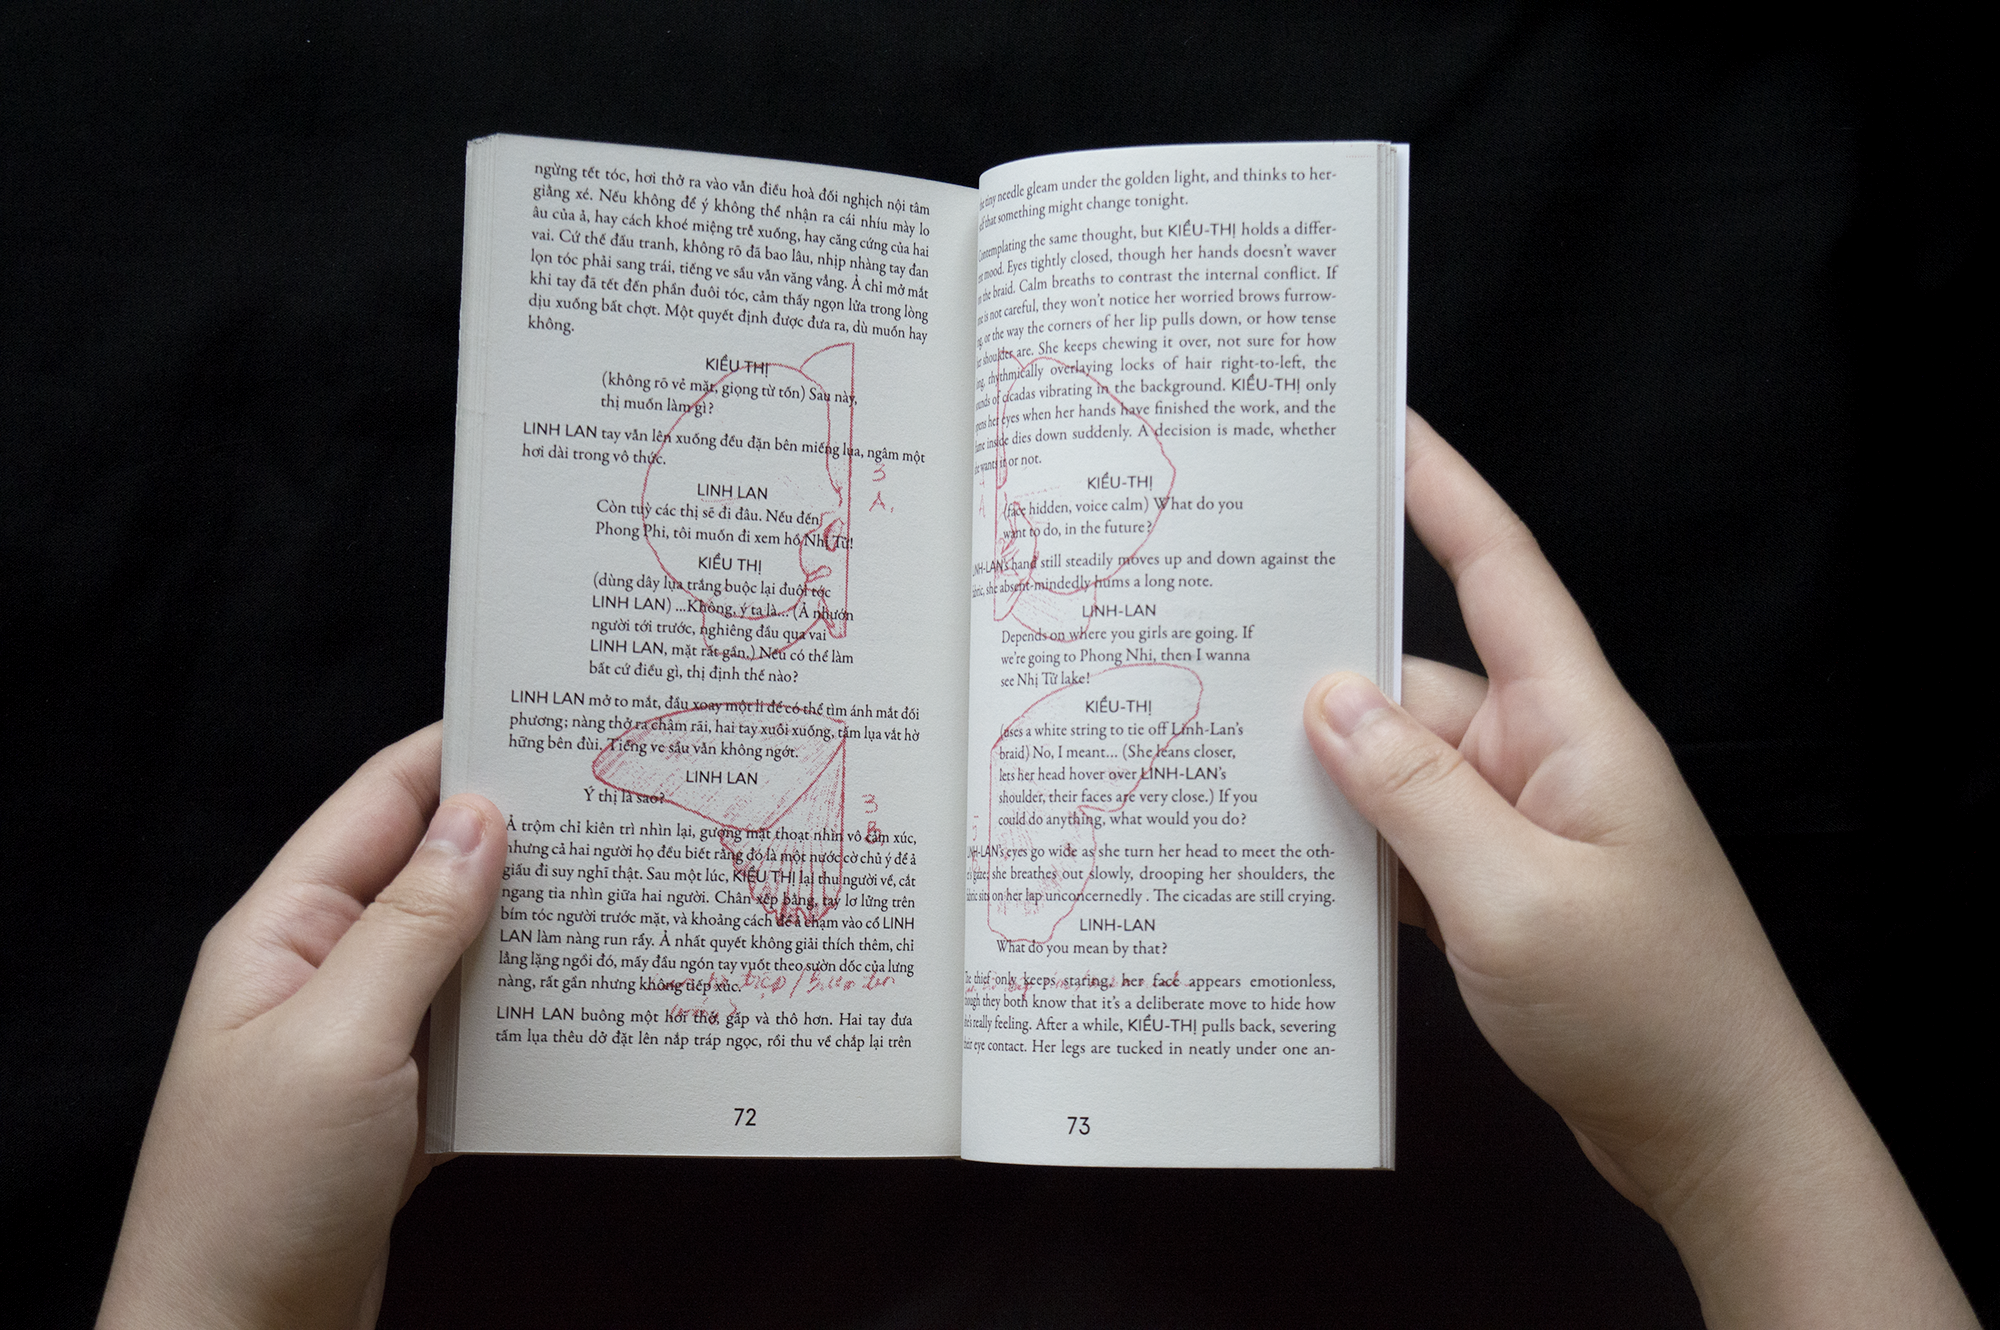 ngừng tết tóc, hơi thở ra vào vẫn điều hoà đối nghịch nội tâm
giằng xé. Nếu không để ý không thể nhận ra cái nhíu mày lo
âu của ả, hay cách khoé miệng trễ xuống, hay căng cứng của hai
vai. Cứ thế đấu tranh, không rõ đã bao lâu, nhịp nhàng tay đan
lọn tóc phải sang trái, tiếng ve sầu vẫn văng vẳng. Ả chỉ mở mắt
khi tay đã tết đến phần đuôi tóc, cảm thấy ngọn lửa trong lòng
dịu xuống bất chợt. Một quyết định được đưa ra, dù muốn hay
không.
KIỀU THỊ
(không rõ vẻ mặt, giọng từ tốn) Sau này,
thị muốn làm gì?
LINH LAN tay vẫn lên xuống đều đặn bên miếng lụa, ngâm một
hơi dài trong vô thức.
LINH LAN
Còn tuỳ các thị sẽ đi đâu. Nếu đến
Phong Phi, tôi muốn đi xem hồ Nhị Tử!
KIỀU THỊ
(dùng dây lụa trắng buộc lại đuôi tóc
LINH LAN) ...Không, ý ta là... (Ả nhướn
người tới trước, nghiêng đầu qua vai
LINH LAN, mặt rất gần.) Nếu có thể làm
bất cứ điều gì, thị định thế nào?
LINH LAN mở to mắt, đầu xoay một li để có thể tìm ánh mắt đối
phương; nàng thở ra chậm rãi, hai tay xuôi xuống, tấm lụa vắt hờ
hững bên đùi. Tiếng ve sầu vẫn không ngớt.
LINH LAN
Ý thị là sao?
Ả trộm chỉ kiên trì nhìn lại, gương mặt thoạt nhìn vô cảm xúc,
nhưng cả hai người họ đều biết rằng đó là một nước cờ chủ ý để ả
giấu đi suy nghĩ thật. Sau một lúc, KIỀU THỊ lại thu người về, cắt
ngang tia nhìn giữa hai người. Chân xếp bằng, tay lơ lửng trên
bím tóc người trước mặt, và khoảng cách để ả chạm vào cổ LINH
LAN làm nàng run rẩy. Ả nhất quyết không giải thích thêm, chỉ
lẳng lặng ngồi đó, mấy đầu ngón tay vuốt theo sườn dốc của lưng
nàng, rất gần nhưng không tiếp xúc.
LINH LAN buông một hơi thở, gấp và thô hơn. Hai tay đưa
tấm lụa thêu dở đặt lên nắp tráp ngọc, rồi thu về chắp lại trên
72
3
A.
3
B
tiny needle gleam under the golden light, and thinks to her-
that something might change tonight.
Contemplating the same thought, but KIỀU-THỊ holds a differ-
mood. Eyes tightly closed, though her hands doesn't waver
the braid. Calm breaths to contrast the internal conflict. If
is not careful, they won't notice her worried brows furrow-
or the way the corners of her lip pulls down, or how tense
shoulder are. She keeps chewing it over, not sure for how
rhythmically overlaying locks of hair right-to-left, the
of cicadas vibrating in the background. KIỀU-THỊ only
her eyes when her hands have finished the work, and the
inside dies down suddenly. A decision is made, whether
wants it or not.
KIỀU-THỊ
(face hidden, voice calm) What do you
want to do, in the future?
hand still steadily moves up and down against the
she absent-mindedly hums a long note.
LINH-LAN
Depends on where you girls are going. If
we're going to Phong Nhi, then I wanna
see Nhị Tử lake!
KIỀU-THỊ
(uses a white string to tie off Linh-Lan's
braid) No, I meant... (She leans closer,
lets her head hover over LINH-LAN's
shoulder, their faces are very close.) If you
could do anything, what would you do?
eyes go wide as she turn her head to meet the oth-
gaze; she breathes out slowly, drooping her shoulders, the
sits on her lap unconcernedly . The cicadas are still crying.
LINH-LAN
What do you mean by that?
thief only keeps staring, her face appears emotionless,
though they both know that it's a deliberate move to hide how
really feeling. After a while, KIỀU-THỊ pulls back, severing
eye contact. Her legs are tucked in neatly under one an-
73